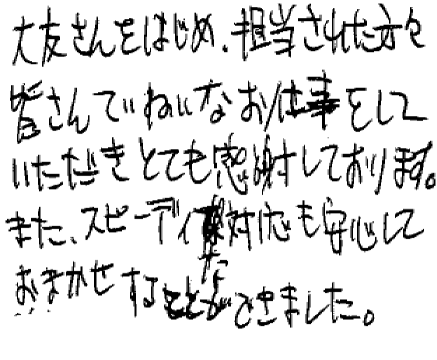 大友さんをはじめ、担当された方々
皆さんていねいなお仕事をして
いただきとても感謝しております。
また、スピーディな対応も安心して
おまかせすることができました。